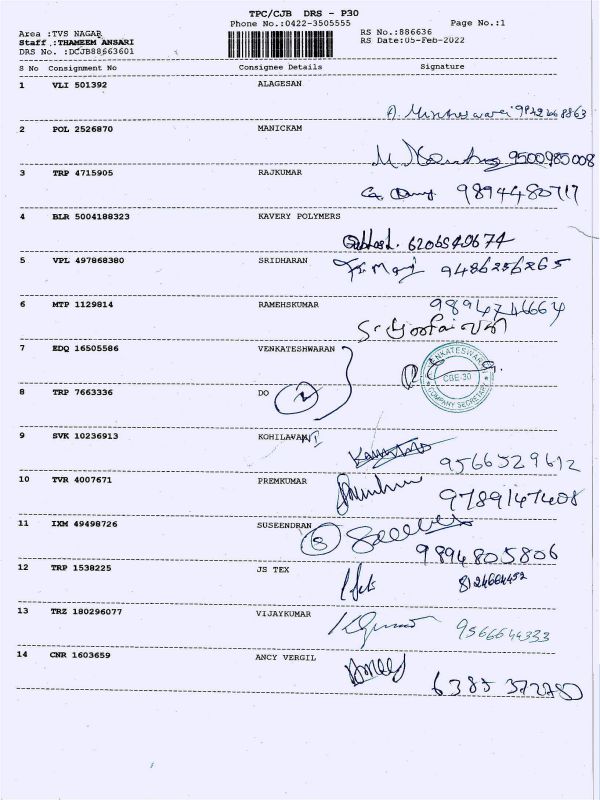 TPC/CJB DRS - P30
Phone No.:0422-3505555 Page No.:1
Area :TVS NAGAR RS No.:886636
Staff :THAMEEM ANSARI RS Date:05-Feb-2022
DRS No. :DCJB88663601
S No Consignment No Consignee Details Signature
1 VLI 501392 ALAGESAN
2 POL 2526870 MANICKAM
9500985008
3 TRP 4715905 RAJKUMAR
9894480717
4 BLR 5004188323 KAVERY POLYMERS
6206549674
5 VPL 497868380 SRIDHARAN
9486256265
6 MTP 1129814 RAMEHSKUMAR
9894746664
7 EDQ 16505586 VENKATESHWARAN
VENKATESWARA
CBE-30
COMPANY SECRETARY
8 TRP 7663336 DO 2
9 SVK 10236913 KOHILAVANI
9566529612
10 TVR 4007671 PREMKUMAR
9789147408
11 IXM 49498726 SUSEENDRAN
9894805806
12 TRP 1538225 JS TEX
13 TRZ 180296077 VIJAYKUMAR
9566644333
14 CNR 1603659 ANCY VERGIL
6385372280